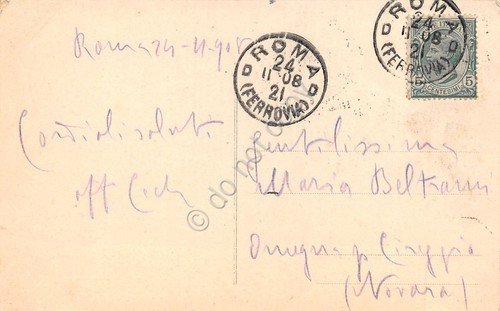 Roma 24-11-908
ROMA
24
11-08
21
(FERROVIA)
ROMA
24
11-08
21
(FERROVIA)
5 CENTESIMI 5
Cordiali saluti
Gentilissima
Maria Beltrami
Omegna p Cireggio
(Novara)
© do not copy